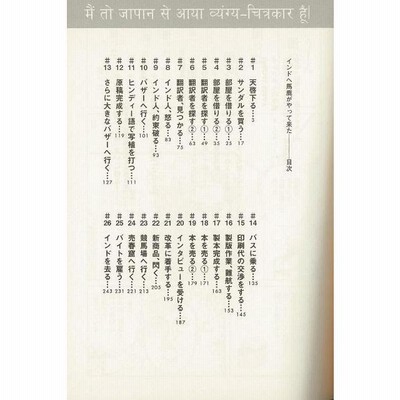 मैं तो जापान से आया व्यंग्य-चित्रकार हूँ!
インドへ馬鹿がやって来た――目次
#1 天啓下る…5
#2 サンダルを買う…17
#3 部屋を借りる①…25
#4 部屋を借りる②…35
#5 翻訳者を探す①…49
#6 翻訳者を探す②…63
#7 翻訳者、見つかる…75
#8 インド人、怒る…83
#9 インド人、約束破る…93
#10 バザーへ行く…101
#11 ヒンディー語で写植を打つ…111
#12 原稿完成する…119
#13 さらに大きなバザーへ行く…127
#14 バスに乗る…135
#15 印刷代の交渉をする…145
#16 製版作業、難航する…153
#17 製本完成する…163
#18 本を売る①…171
#19 本を売る②…179
#20 インタビューを受ける…187
#21 改革に着手する…195
#22 新商品、閃く…205
#23 競馬場へ行く…213
#24 売春窟へ行く…221
#25 バイトを雇う…231
#26 インドを去る…243